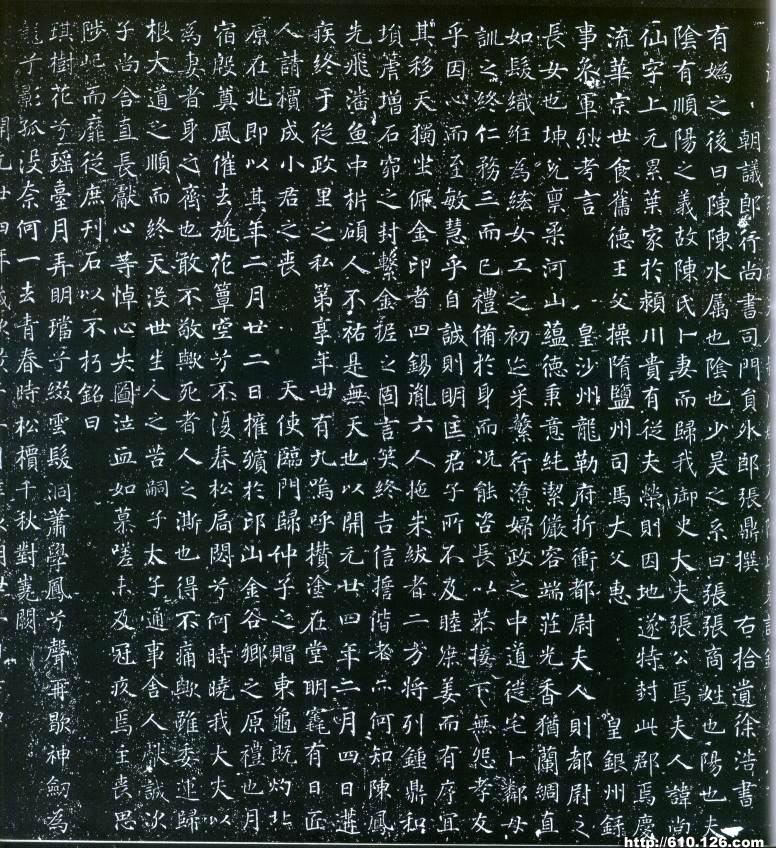 朝議郎行尚書司門員外郎張鼎撰 右拾遺徐浩書
有媯之後曰陳陳水屬也陰也少昊之系曰張張商姓也陽也夫
陰有順陽之義故陳氏卜妻而歸我御史大夫張公焉夫人諱尚
仙字上元累葉家於潁川貴有從夫榮則因地遂特封此郡焉慶
流華宗世食舊德王父操隋鹽州司馬大父惠 皇銀州錄
事參軍烈考言 皇沙州龍勒府折衝都尉夫人則都尉之
長女也坤兌稟柔河山蘊德秉意純潔儼容端莊光香猶蘭綢直
如髮織紝為綌女工之初迄采蘩行潦婦政之中道從宅卜鄰母
訓之終仁務三而已禮備於身而況能咨長以恭接下無怨孝友
乎因心而至敏慧乎自誠則明匡君子所不及睦庶姜而有序宜
其移天獨坐佩金印者四錫胤六人拖朱紱者二方將列鍾鼎和
塤篪增石窌之封繫金柅之固言笑終吉信誓偕老亦何知陳鳳
先飛潘魚中析碩人不祐是無天也以開元廿四年二月四日遘
疾終于從政里之私第享年卌有九嗚呼欑塗在堂明竁有日匠
人請檟成小君之喪 天使臨門歸仲子之賵東龜既灼北
原在兆即以其年二月廿二日權殯於邙山金谷鄉之原禮也月
宿殷奠風催去旐花簟空兮不復春松扃閟兮何時曉我大夫以
為妻者身之齊也敢不敬歟死者人之澌也得不痛歟雖委運歸
根大道之順而終天沒世生人之苦嗣子太子通事舍人獻誠次
子尚舍直長獻心等悼心失圖泣血如慕嗟未及冠疚焉主喪思
陟屺而靡從庶刊石以不朽銘曰
琪樹花兮瑤臺月弄明璫兮綴雲髮洞蕭學鳳兮聲再歇神劍為
龍兮影孤沒奈何一去青春時松檟千秋對嵩闕
開元廿四年歲次
http://610.126.com